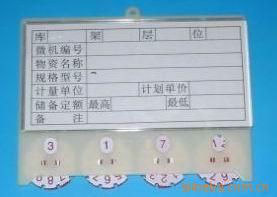 库 架 层 位
微机编号
物资名称
规格型号
计量单位 计划单价
储备定额 最高 最低
备 注
3 1 7